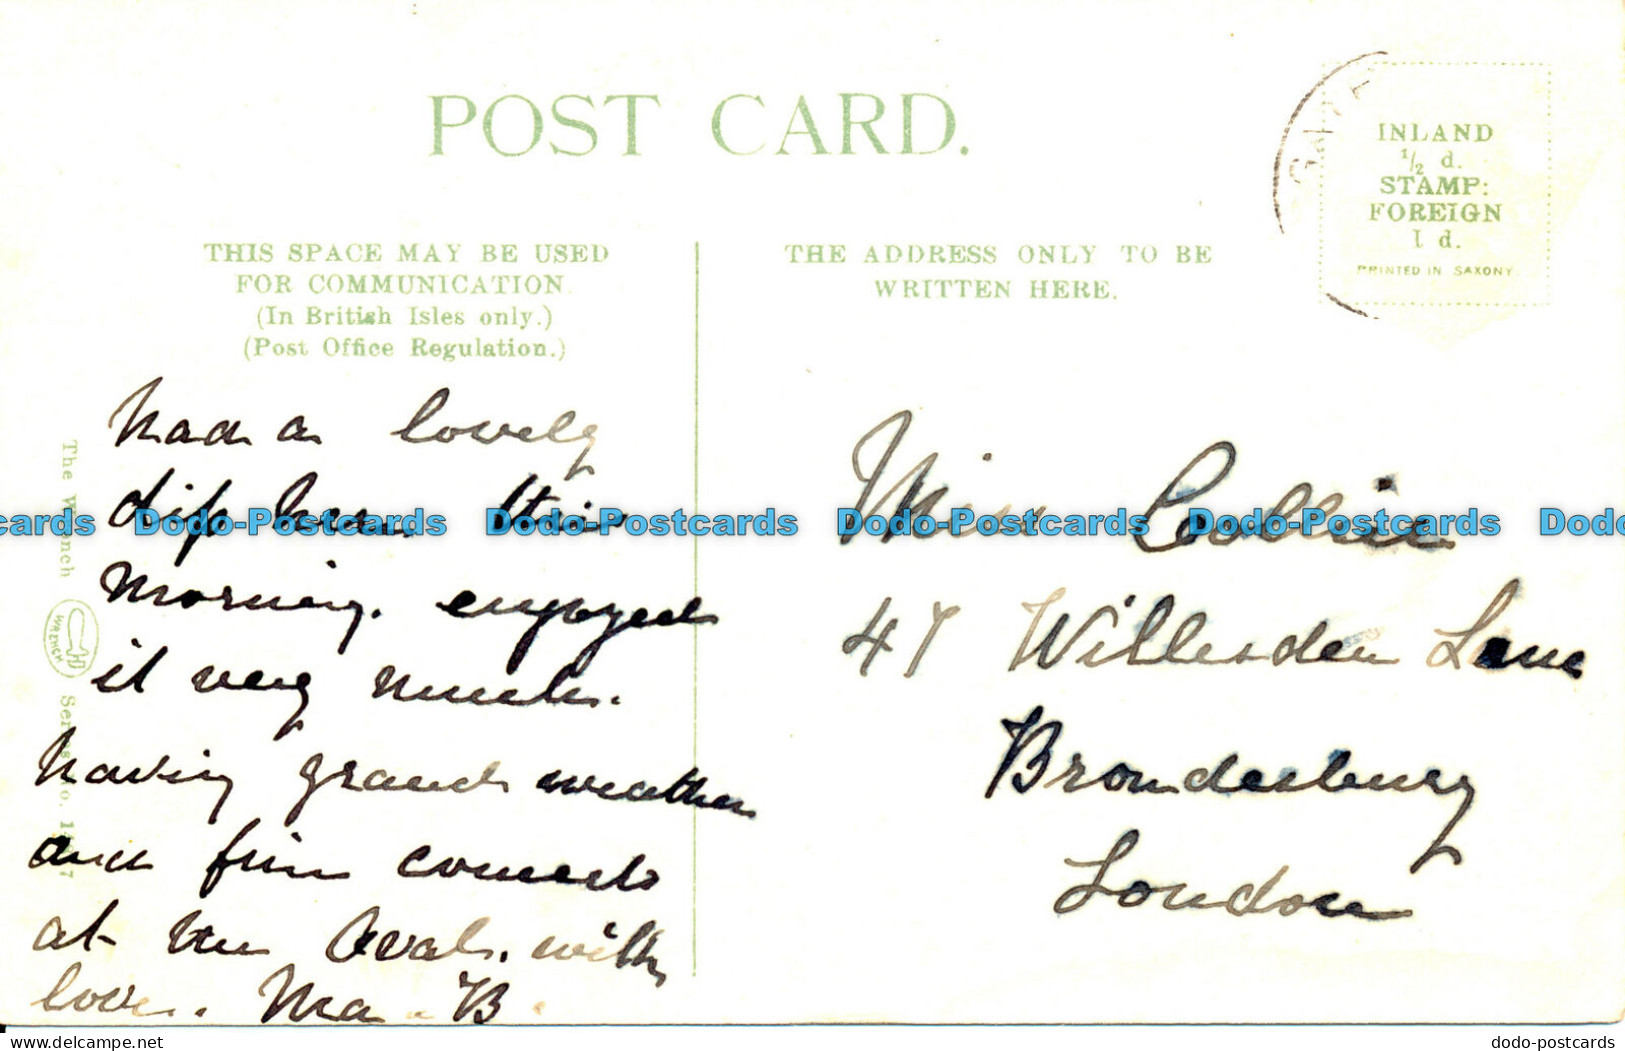 POST CARD.
INLAND
1/2 d.
STAMP:
FOREIGN
1 d.
PRINTED IN SAXONY
THIS SPACE MAY BE USED
FOR COMMUNICATION.
(In British Isles only.)
(Post Office Regulation.)
THE ADDRESS ONLY TO BE
WRITTEN HERE.
had a lovely
dip here this
morning. enjoyed
it very much.
having grand weather
and fine concerts
at the Oval. with
love. Ma. B.
Miss Collier
47 Willesden Lane
Brondesbury
London
The Wrench
WRENCH
Series No.
Dodo-Postcards Dodo-Postcards Dodo-Postcards Dodo-Postcards
dodo-postcards
www.delcampe.net